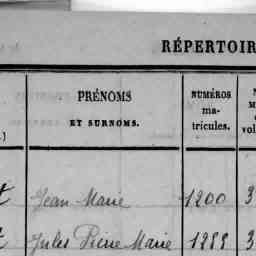 RÉPERTOIR
PRÉNOMS
ET SURNOMS.
NUMÉROS
ma-
tricules.
Jean Marie 1200 3
Jules Pierre Marie 1299 3